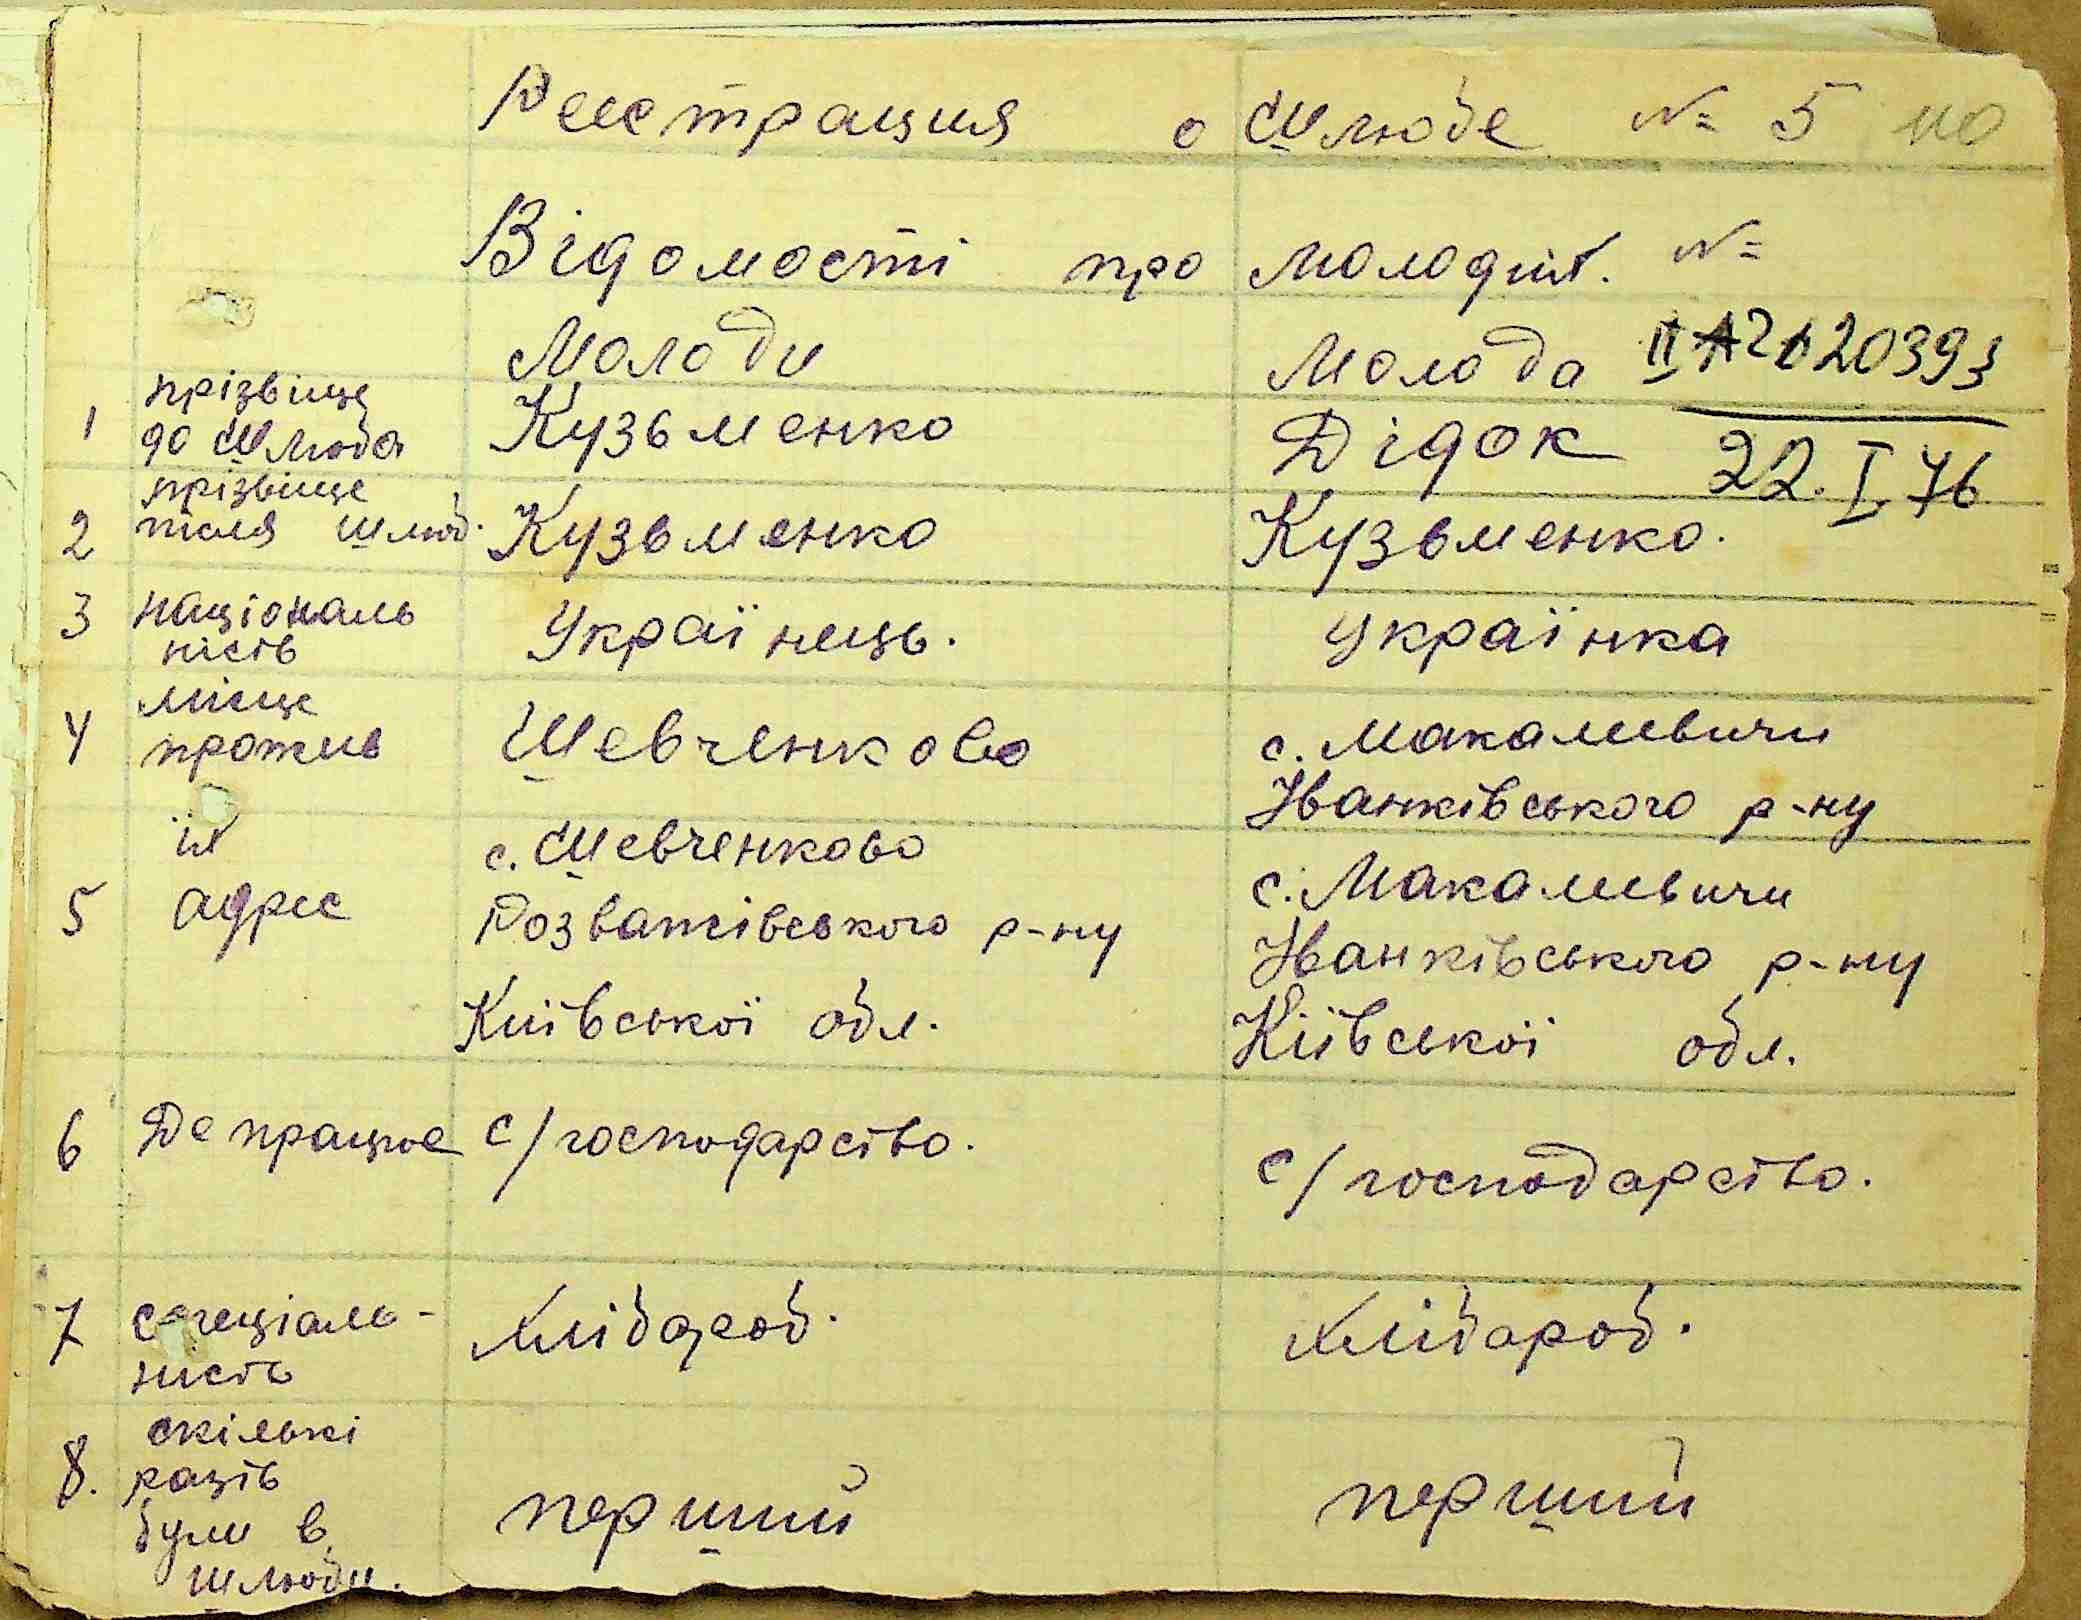 Реєстрация о шлюбе № 5 110
Відомості про молодит. №
Молоди Молода II А2 020393
1 прізвище до шлюба Кузьменко Дідок 22.I.76
2 прізвище після шлюб. Кузьменко Кузьменко.
3 національ ність Українець. Українка
4 місце прожив Шевченково с. Макалевичи
Іванківського р-ну
їх с. Шевченково с. Макалевичи
5 адрес Розважівського р-ну Іванківського р-ну
Київської обл. Київської обл.
6 Де працює с/господарство. с/господарство.
7 спеціаль- ність хлібороб. хлібароб.
8. скількі разів перший перший
були в
шлюби.